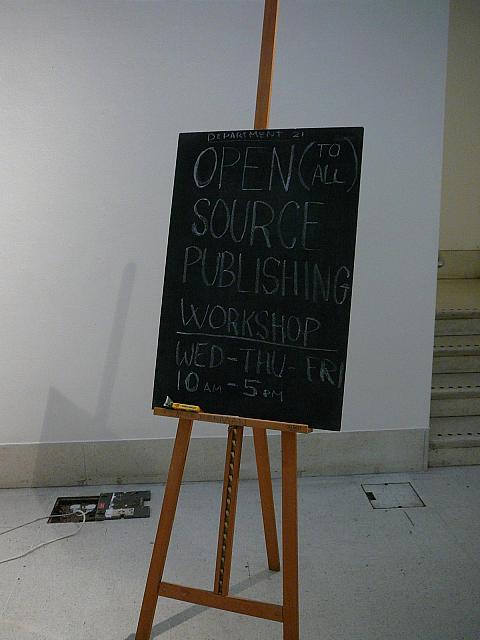 DEPARTMENT 21
OPEN (TO ALL)
SOURCE
PUBLISHING
WORKSHOP
WED-THU-FRI
10 AM - 5 PM